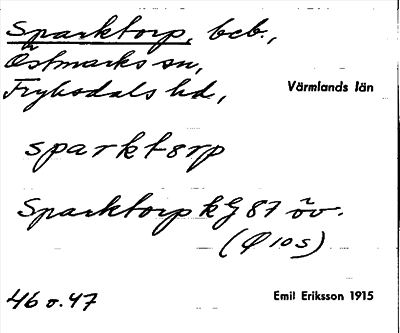 Sparktorp, beb.,
Östmarks sn,
Fryksdals hd,
Värmlands län
sparktorp
Sparktorp k G 87 öv.
(Ø 105)
46 o. 47
Emil Eriksson 1915